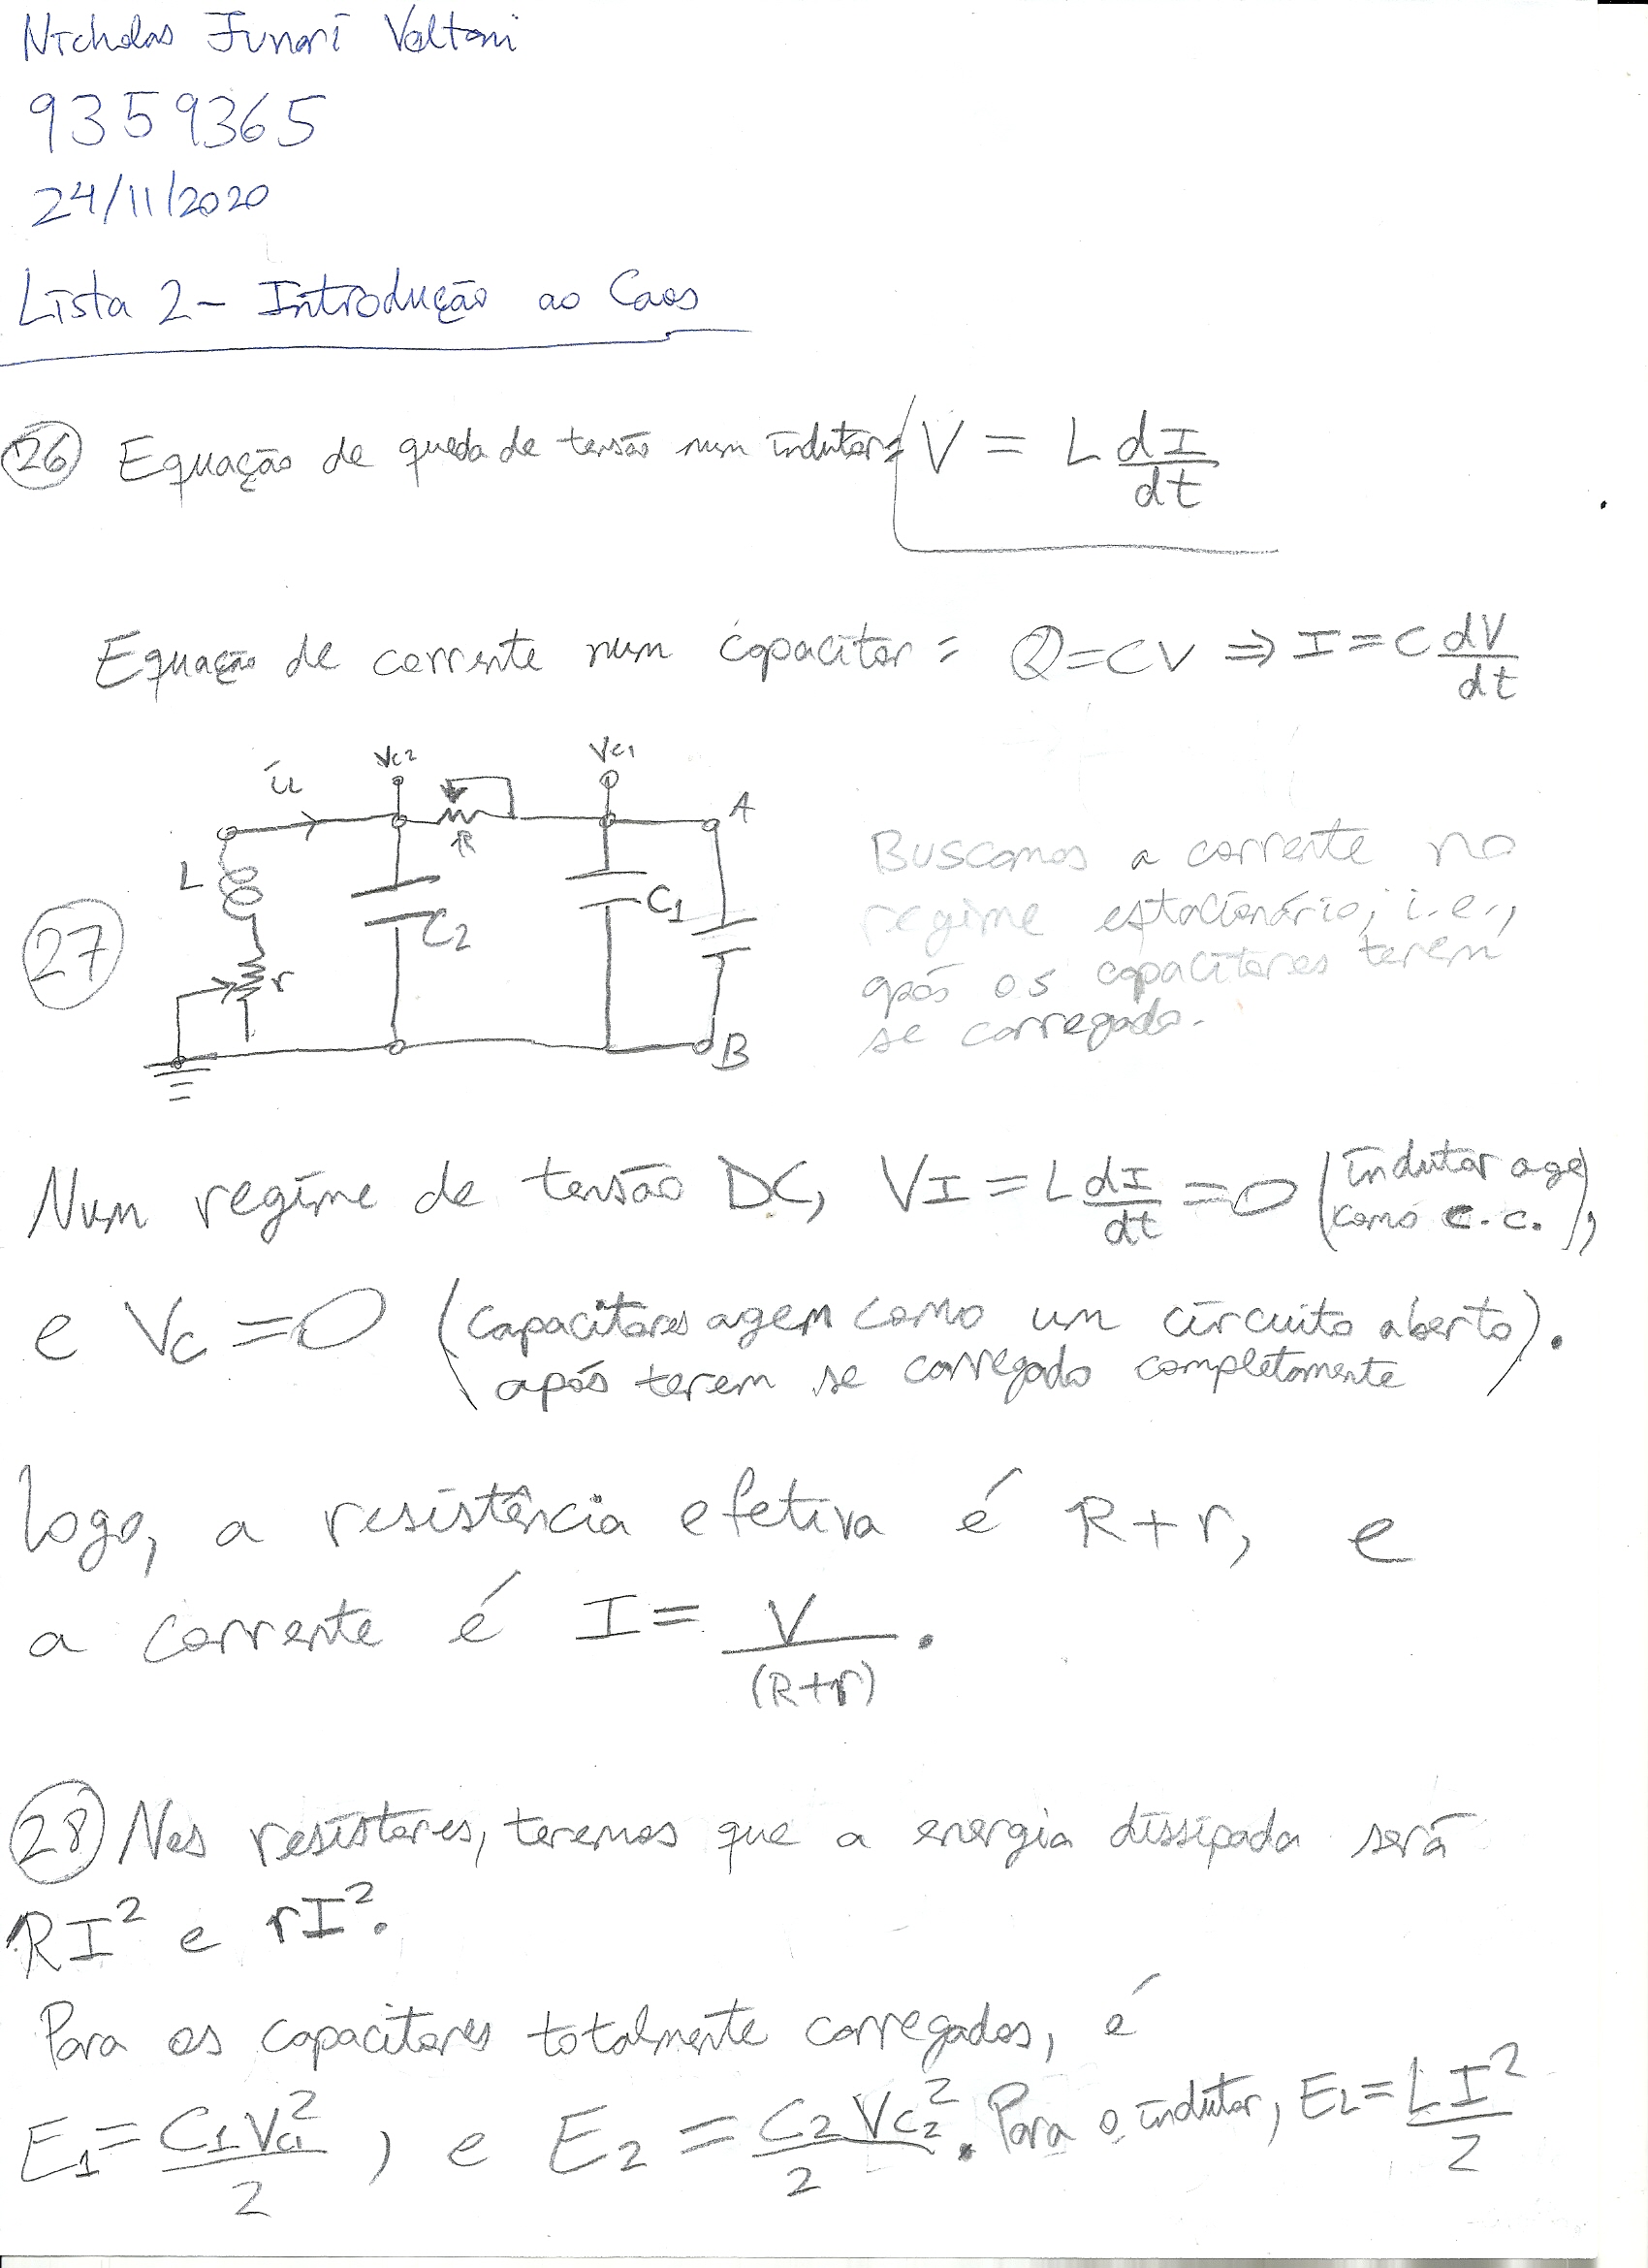 Nicholas Funari Voltani
9359365
24/11/2020
Lista 2 - Introdução ao Caos
26 Equação de queda de tensão num indutor: V = L dI/dt
Equação de corrente num capacitor: Q = CV ⇒ I = C dV/dt
27
iL
Vc2
Vc1
A
R
L
C2
C1
r
B
Buscamos a corrente no
regime estacionário, i.e.,
após os capacitores terem
se carregado.
Num regime de tensão DC, VI = L dI/dt = 0 (indutor age como c.c.),
e Vc = 0 (capacitores agem como um circuito aberto).
após terem se carregado completamente
logo, a resistência efetiva é R+r, e
a corrente é I = V/(R+r).
28 Nos resistores, teremos que a energia dissipada será
RI² e rI².
Para os capacitores totalmente carregados, é
E1 = C1 Vc1²/2, e E2 = C2 Vc2²/2. Para o indutor, EL = LI²/2